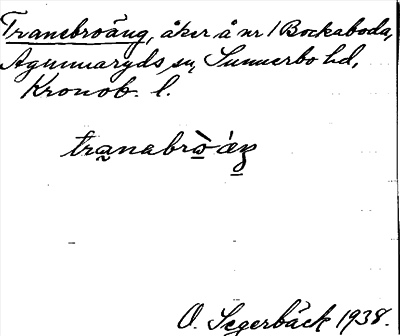 Tranebroäng, åker å nr 1 Bockaboda,
Agunnaryds sn, Sunnerbo hd,
Kronob. l.
tranabrò áŋ
O. Segerbäck 1938.